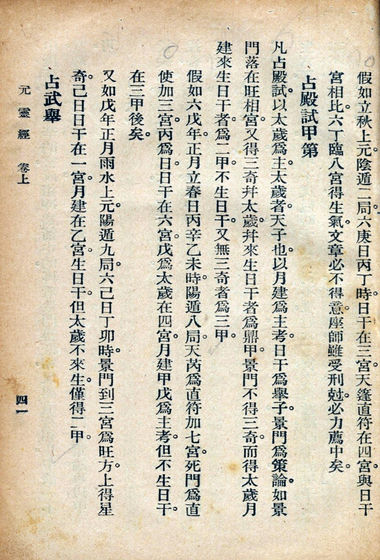 假如立秋上元陰遁二局六庚日丙丁時日干在三宮天蓬直符在四宮與日干
宮相比六丁臨八宮得生氣文章必不得意座師雖受刑尅必力薦中矣
占殿試甲第
凡占殿試以太歲爲主太歲者天子也以月建爲主考日干爲舉子景門爲策論如景
門落在旺相宮又得三奇幷太歲幷來生日干者爲鼎甲景門不得三奇而得太歲月
建來生日干者爲二甲不生日干又無三奇者爲三甲
假如六戊年正月立春日丙辛乙未時陽遁八局天芮爲直符加七宮死門爲直
使加三宮丙爲日日干在六宮戊爲太歲在四宮月建甲戊爲主考但不生日干
在三甲後矣
又如戊年正月雨水上元陽遁九局六己日丁卯時景門到三宮爲旺方上得星
奇己日日干在一宮月建在乙宮生日干但太歲不來生僅得二甲
占武舉
元靈經 卷上
四一